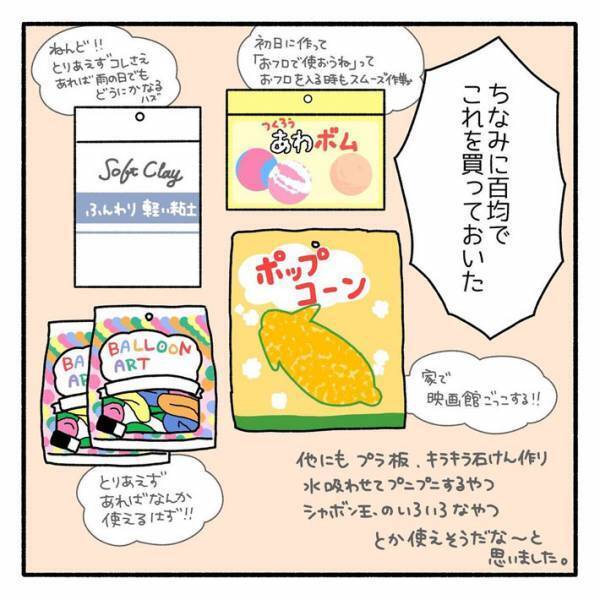 ちなみに百均で
これを買っておいた
初日に作って
「おフロで使おうね」って
おフロを入る時もスムーズ作戦
ねんど!!
とりあえずコレさえ
あれば雨の日でも
どうにかなる
ハズ
つくろう
あわボム
Soft Clay
ふんわり 軽い粘土
ポップ
コーン
BALLOON
ART
BALLOON
ART
家で
映画館ごっこする!!
とりあえず
あればなんか
使えるはず!!
他にも プラ板、キラキラ石けん作り
水吸わせてプニプニするやつ
シャボン玉、のいろいろなやつ
とか使えそうだな〜と
思いました。